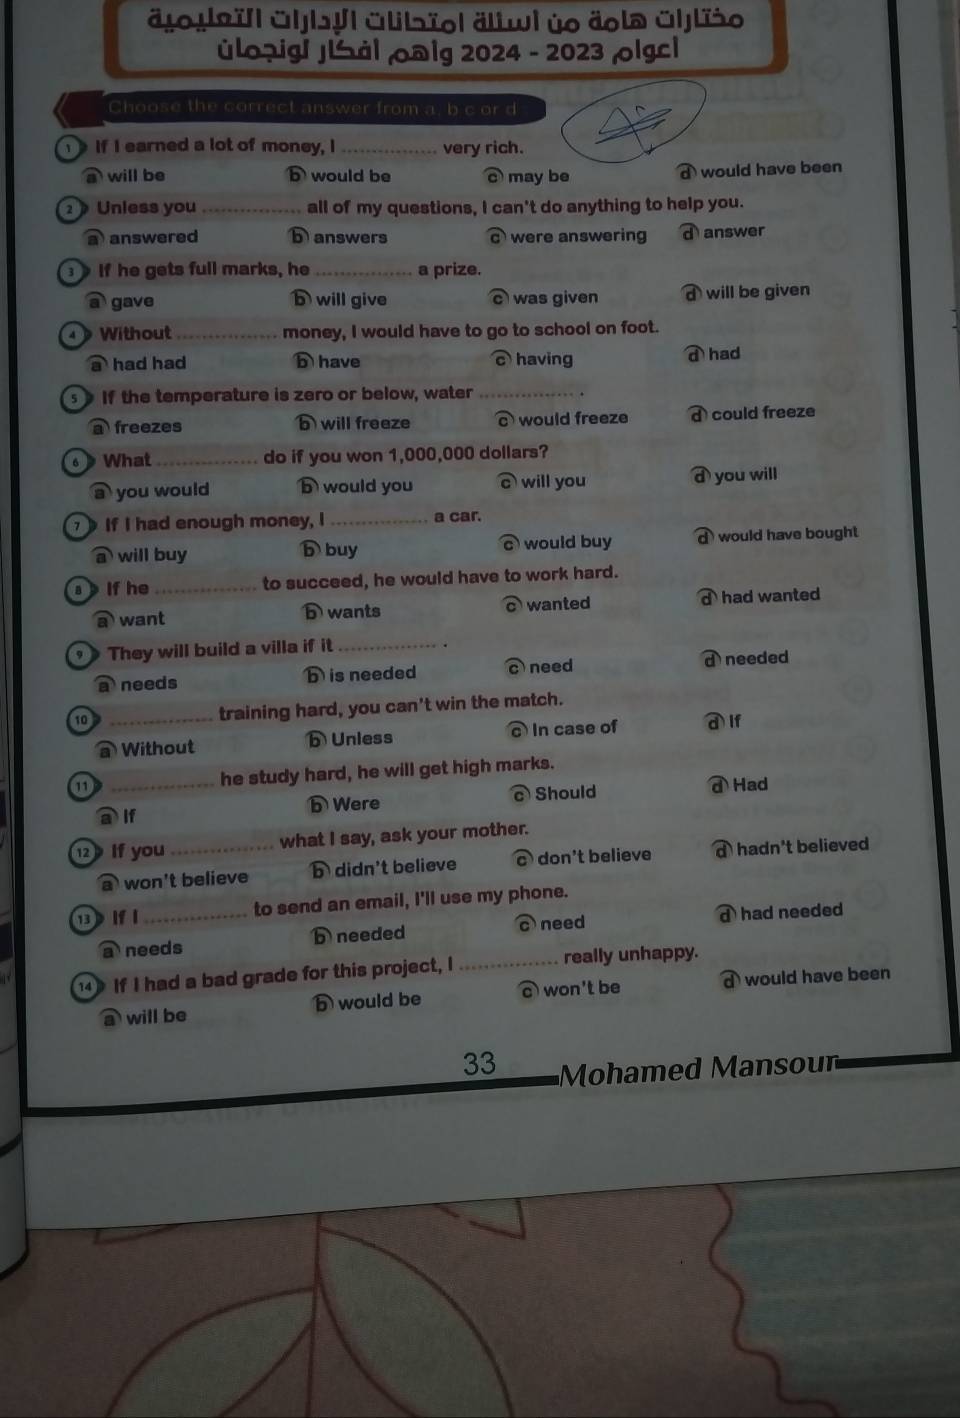 مختارات هامة من أسئلة امتحانات الإدارات التعليمية
لأعوام 2023 - 2024 وأهم أفكار أونجمان
Choose the correct answer from a, b c or d
1 If I earned a lot of money, I ................ very rich.
a will be b would be c may be d would have been
2 Unless you ................ all of my questions, I can't do anything to help you.
a answered b answers c were answering d answer
3 If he gets full marks, he ................ a prize.
a gave b will give c was given d will be given
4 Without ................ money, I would have to go to school on foot.
a had had b have c having d had
5 If the temperature is zero or below, water ................ .
a freezes b will freeze c would freeze d could freeze
6 What ................ do if you won 1,000,000 dollars?
a you would b would you c will you d you will
7 If I had enough money, I ................ a car.
a will buy b buy c would buy d would have bought
8 If he ................ to succeed, he would have to work hard.
a want b wants c wanted d had wanted
9 They will build a villa if it ................ .
a needs b is needed c need d needed
10 ................ training hard, you can't win the match.
a Without b Unless c In case of d If
11 ................ he study hard, he will get high marks.
a If b Were c Should d Had
12 If you ................ what I say, ask your mother.
a won't believe b didn't believe c don't believe d hadn't believed
13 If I ................ to send an email, I'll use my phone.
a needs b needed c need d had needed
14 If I had a bad grade for this project, I ................ really unhappy.
a will be b would be c won't be d would have been
33 Mohamed Mansour